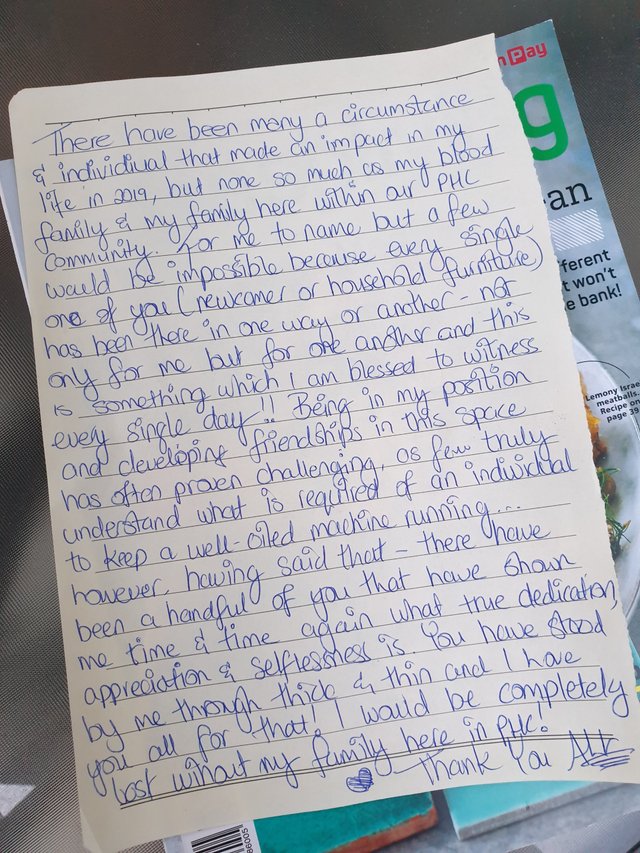 There have been many a circumstance
& individiual that made an impact in my
life in 2019, but none so much as my blood
family & my family here within our PHC
Community. For me to name but a few
would be impossible because every single
one of you (newcomer or household furniture)
has been there in one way or another - not
only for me but for one another and this
is something which I am blessed to witness
every single day!! Being in my position
and developing friendships in this space
has often proven challenging, as few truly
understand what is required of an individual
to keep a well-oiled machine running...
however, having said that - there have
been a handful of you that have shown
me time & time again what true dedication,
appreciation & selflessness is. You have stood
by me through thick & thin and I have
you all for that! I would be completely
lost without my family here in PHC!
Thank You ALL
Pay
g
an
fferent
t won't
e bank!
Lemony Israe
meatballs.
Recipe on
page 39
86005